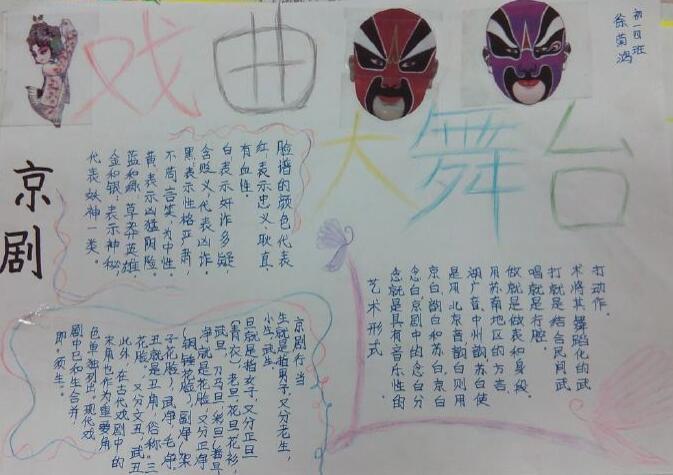 戏曲
大舞台
初一四班
京剧
脸谱的颜色代表
红:表示忠义、耿直、
有血性。
白:表示奸诈多疑,
含贬义,代表凶诈。
黑:表示性格严肃,
不苟言笑,为中性。
黄:表示凶猛阴险
蓝和绿:草莽英雄
金和银:表示神秘
代表妖神一类。
艺术形式
念就是具有音乐性的
念白,京剧中的念白分
京白,韵白和苏白,京白
是用北京音,韵白则用
湖广音、中州韵,苏白使
用苏南地区的方言,
做就是做表和身段.
唱就是行腔.
打就是结合民间武
术将其舞蹈化的武
打动作.
京剧行当
生就是指男子,又分老生,
小生,武生
旦就是指女子,又分正旦
(青衣)老旦,花旦,花衫,
武旦,刀马旦
净就是花脸,又分正净
(铜锤花脸),副净(架
子花脸),武净,毛净
丑就是丑角,俗称"三
花脸",又分文丑,武丑
此外,在古代戏剧中的
末角也作为重要角
色单独列出,现代戏
剧中已和生合并
即,须生。